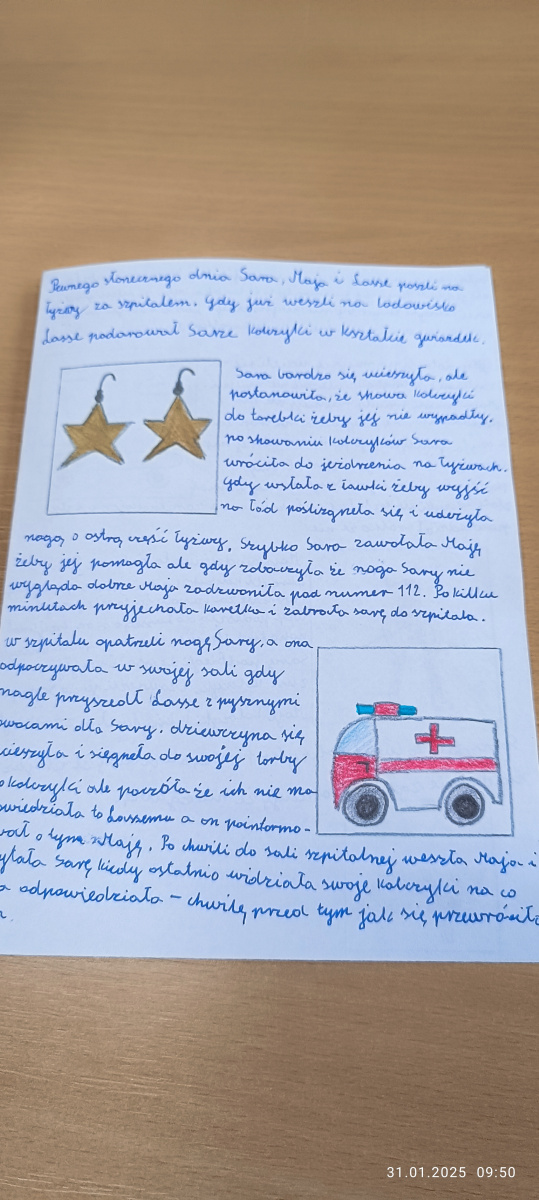 Pewnego słonecznego dnia Sara, Maja i Lasse poszli na
łyżwy za szpitalem. Gdy już weszli na lodowisko
Lasse podarował Sarze kolczyki w kształcie gwiazdek.
Sara bardzo się ucieszyła, ale
postanowiła, że schowa kolczyki
do torebki żeby jej nie wypadły.
po schowaniu kolczyków Sara
wróciła do jeżdżenia na łyżwach.
Gdy wstała z ławki żeby wyjść
na lód poślizgnęła się i udeżyła
nogą o ostrą część łyżwy. Szybko Sara zawołała Maję
żeby jej pomogła ale gdy zobaczyła że noga Sary nie
wygląda dobrze Maja zadzwoniła pod numer 112. Po kilku
minutach przyjechała karetka i zabrała sarę do szpitala.
w szpitalu opatrzeli nogę Sary, a ona
odpoczywała w swojej sali gdy
nagle przyszedł Lasse z pysznymi
owocami dla Sary. dziewczyna się
ucieszyła i sięgneła do swojej torby
kolczyki ale poczóła że ich nie ma
powiedziała to Lassemu a on poinformo-
wał o tym Maję. Po chwili do sali szpitalnej weszła Maja i
Sarę kiedy ostatnio widziała swoje kolczyki na co
odpowiedziała - chwilę przed tym jak się przewróciła
31.01.2025 09:50